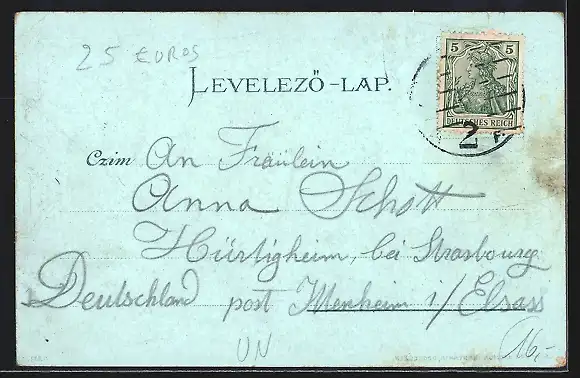 25 EUROS
LEVELEZŐ-LAP.
5 5
DEUTSCHES REICH
2 F.
Czim An Fräulein
Anna Schott
Hürtigheim, bei Strasbourg
Deutschland post Ittenheim i/Elsass
UN
16,-